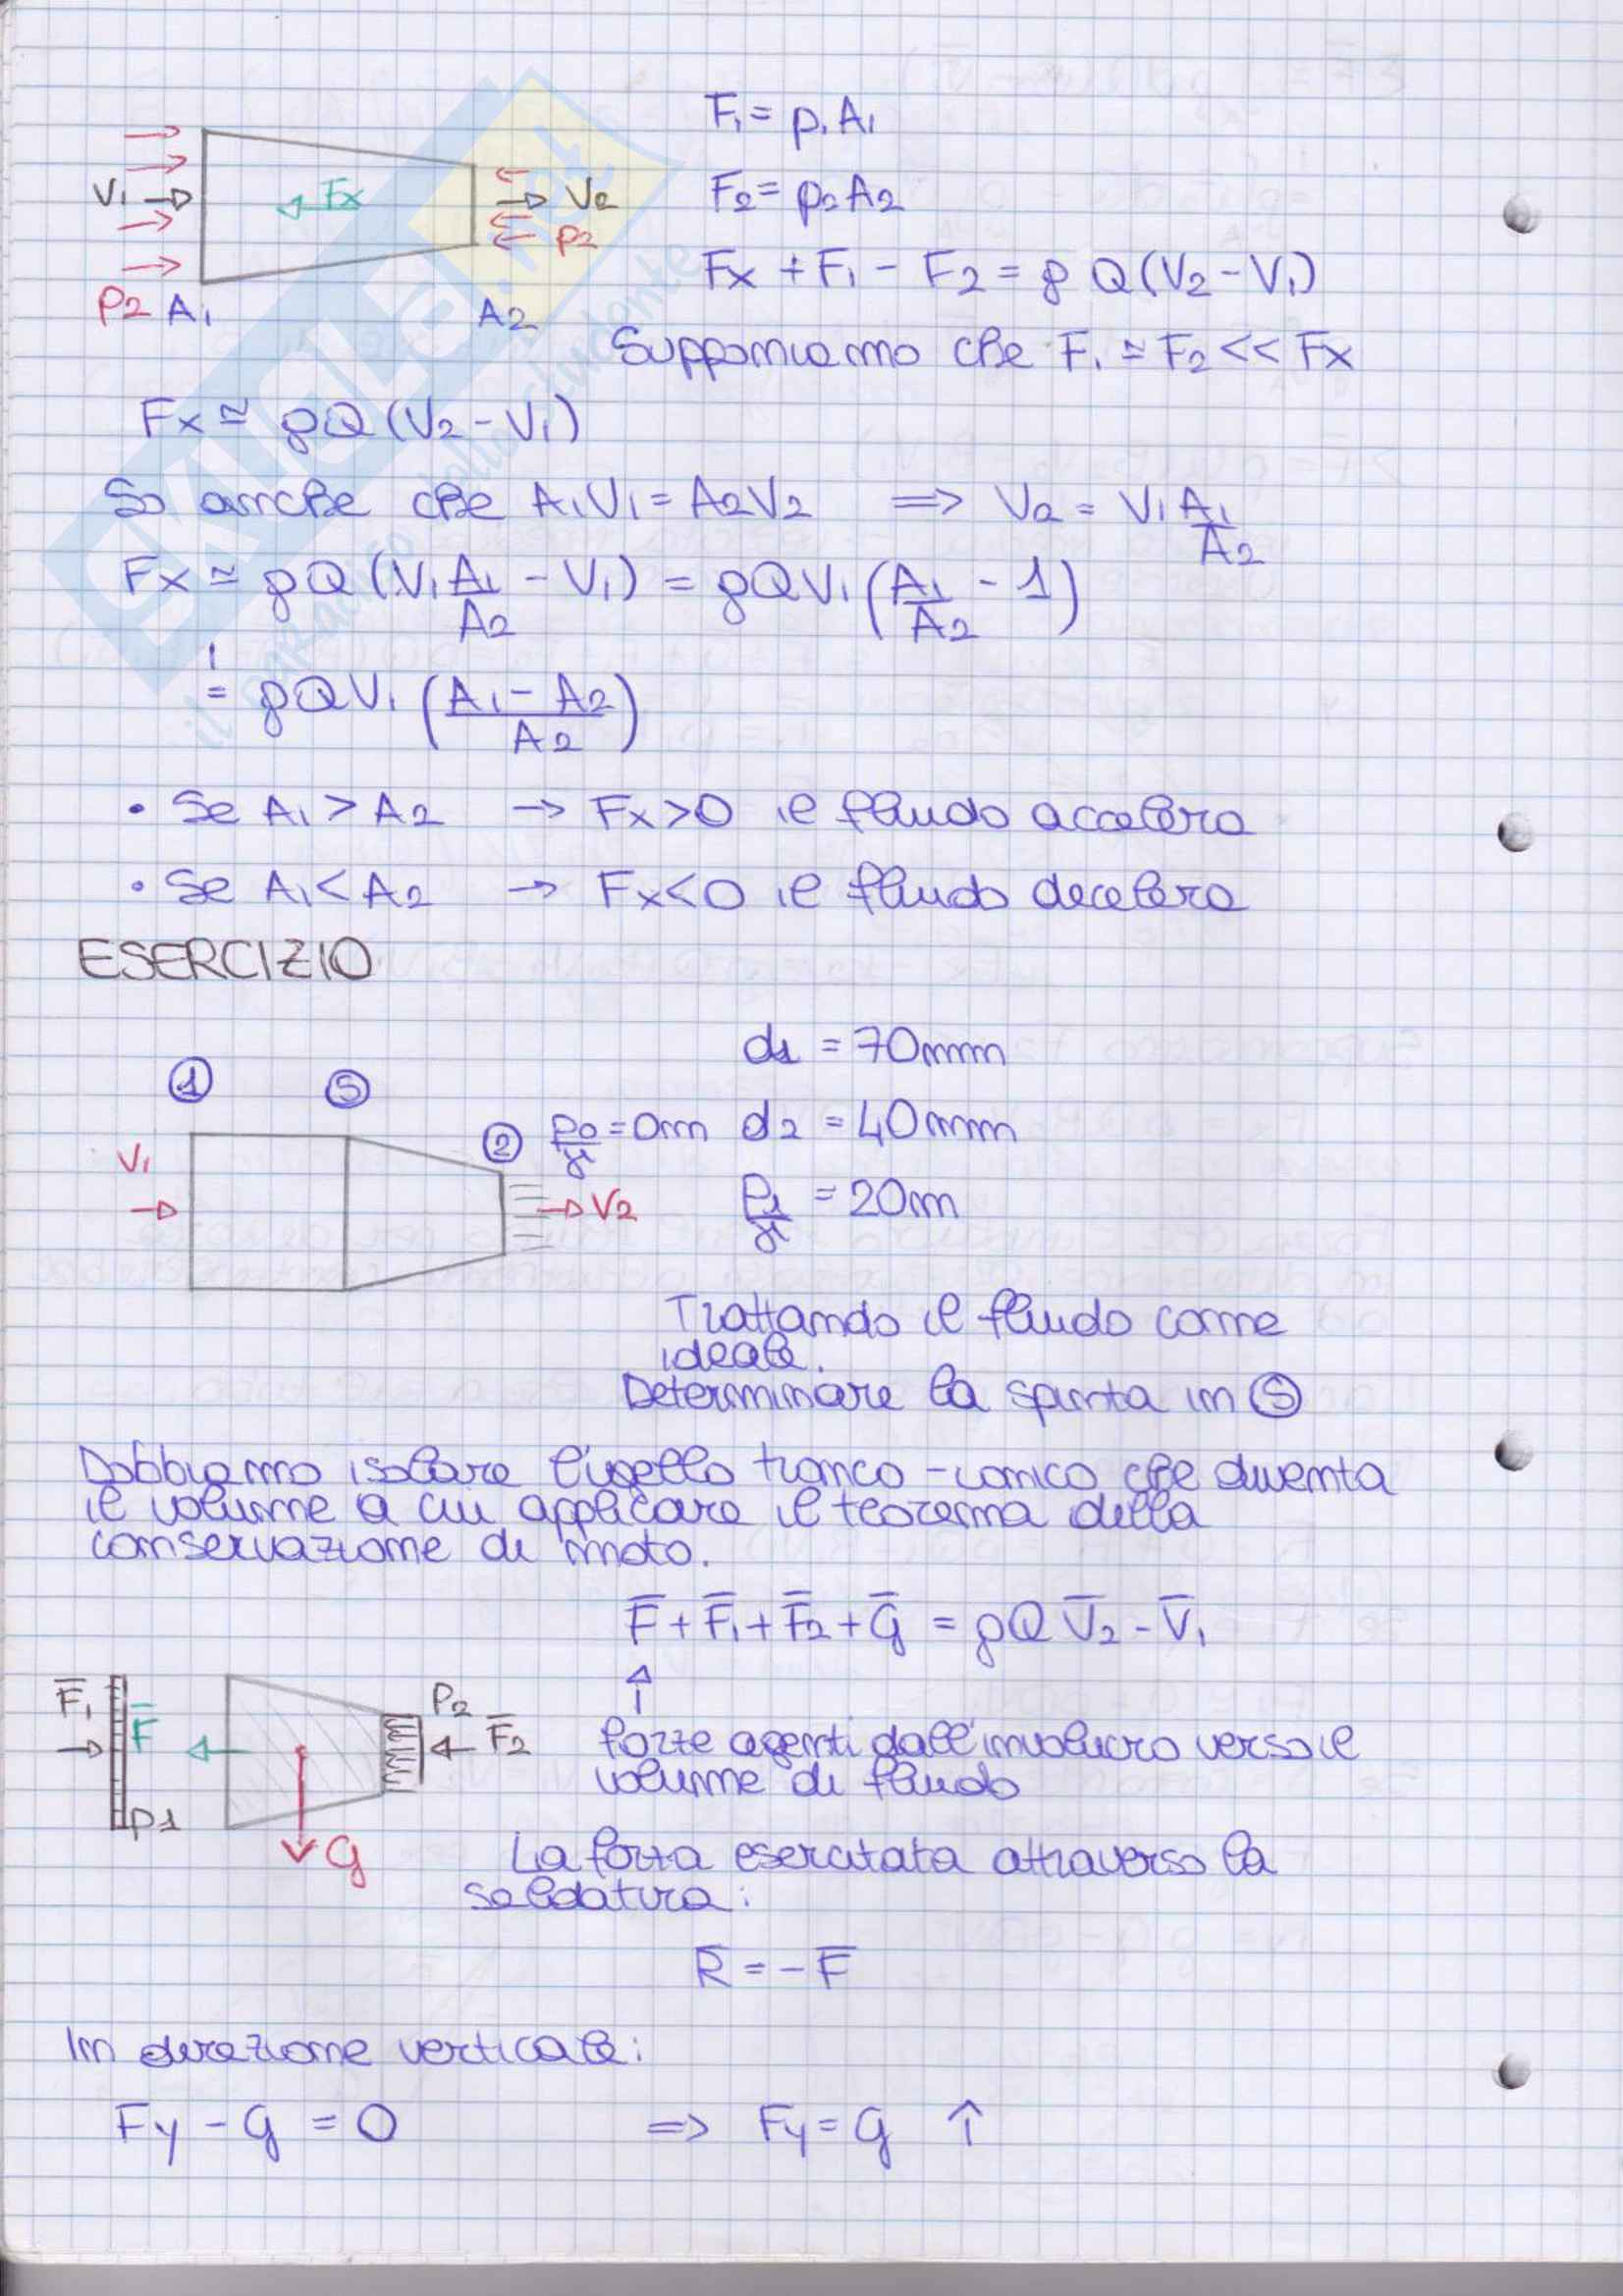 F₁ = p₁A₁
V₁ Fx V₂
F₂ = p₂A₂
p₂
Fx + F₁ - F₂ = ρ Q (V₂ - V₁)
P₂ A₁ A₂
Supponiamo che F₁ ≃ F₂ << Fx
Fx ≃ ρQ (V₂ - V₁)
So anche che A₁V₁ = A₂V₂ => V₂ = V₁ A₁/A₂
Fx ≃ ρQ (V₁ A₁/A₂ - V₁) = ρQV₁ (A₁/A₂ - 1)
= ρQV₁ ((A₁ - A₂)/A₂)
• Se A₁ > A₂ → Fx>0 il fluido accelera
• Se A₁ < A₂ → Fx<0 il fluido decelera
ESERCIZIO
d₁ = 70mm
① Ⓢ
② p₀/γ = 0m d₂ = 40mm
V₁
V₂ P₁/γ = 20m
Trattando il fluido come
ideale.
Determinare la spinta in Ⓢ
Dobbiamo isolare l'ugello tronco-conico che diventa
il volume a cui applicare il teorema della
conservazione di moto.
F̅ + F̅₁ + F̅₂ + G̅ = ρQ V̅₂ - V̅₁
F̅₁ F̅ P₂ F̅₂
forze agenti dall'involucro verso il
volume di fluido
p1
G
La forza esercitata attraverso la
saldatura:
R̅ = - F̅
In direzione verticale:
Fy - G = 0 => Fy = G ↑